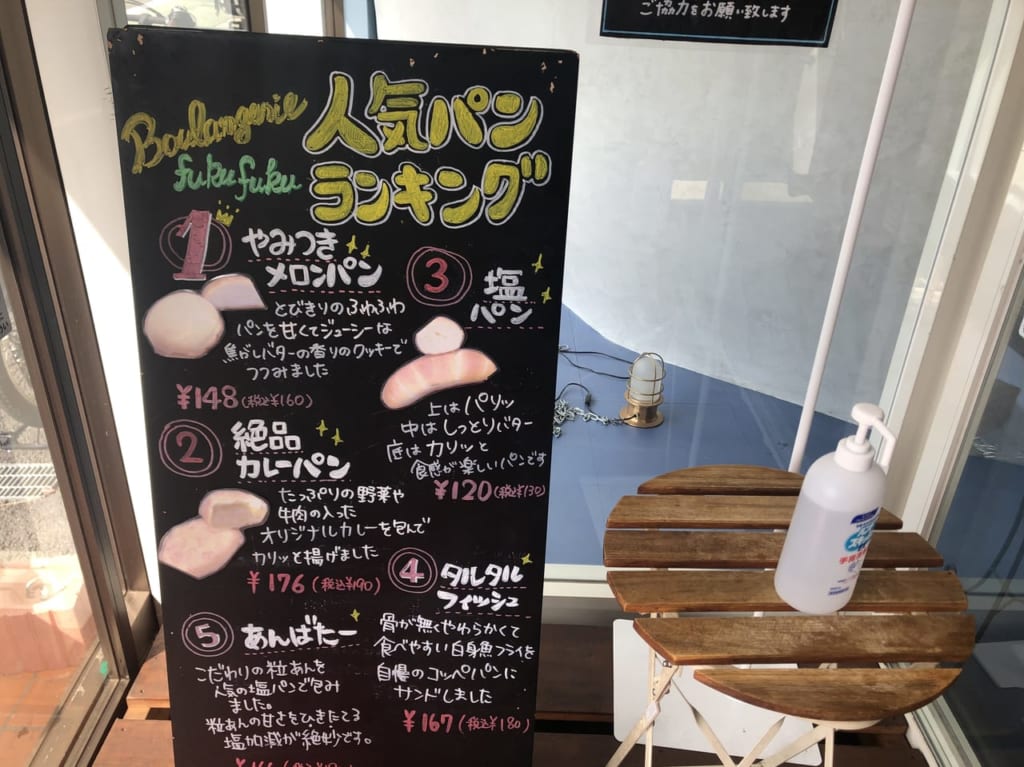 ご協力をお願い致します
Boulangerie
fuku fuku
人気パン
ランキング
1
やみつき
メロンパン
とびきりのふわふわ
パンを甘くてジューシーな
焦がしバターの香りのクッキーで
つつみました
¥148(税込¥160)
2
絶品
カレーパン
たっぷりの野菜や
牛肉の入った
オリジナルカレーを包んで
カリッと揚げました
¥176(税込¥190)
3
塩
パン
上はパリッ
中はしっとりバター
底はカリッと
食感が楽しいパンです
¥120(税込¥130)
4
タルタル
フィッシュ
骨が無くやわらかくて
食べやすい白身魚フライを
自慢のコッペパンに
サンドしました
¥167(税込¥180)
5
あんばたー
こだわりの粒あんを
人気の塩パンで包み
ました。
粒あんの甘さをひきたてる
塩加減が絶妙です。